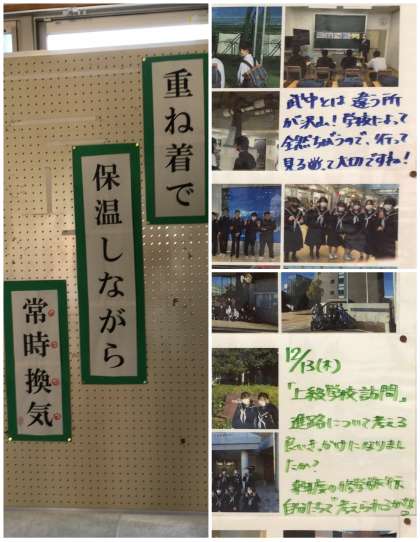 重ね着で
保温しながら
常時換気
武中とは違う所
が沢山!学校によって
全然ちがうので、行って
見るって大切ですね!
12/13(木)
「上級学校訪問」
進路について考える
良いきっかけになりまし
たか?
自分たちで考えられるかな